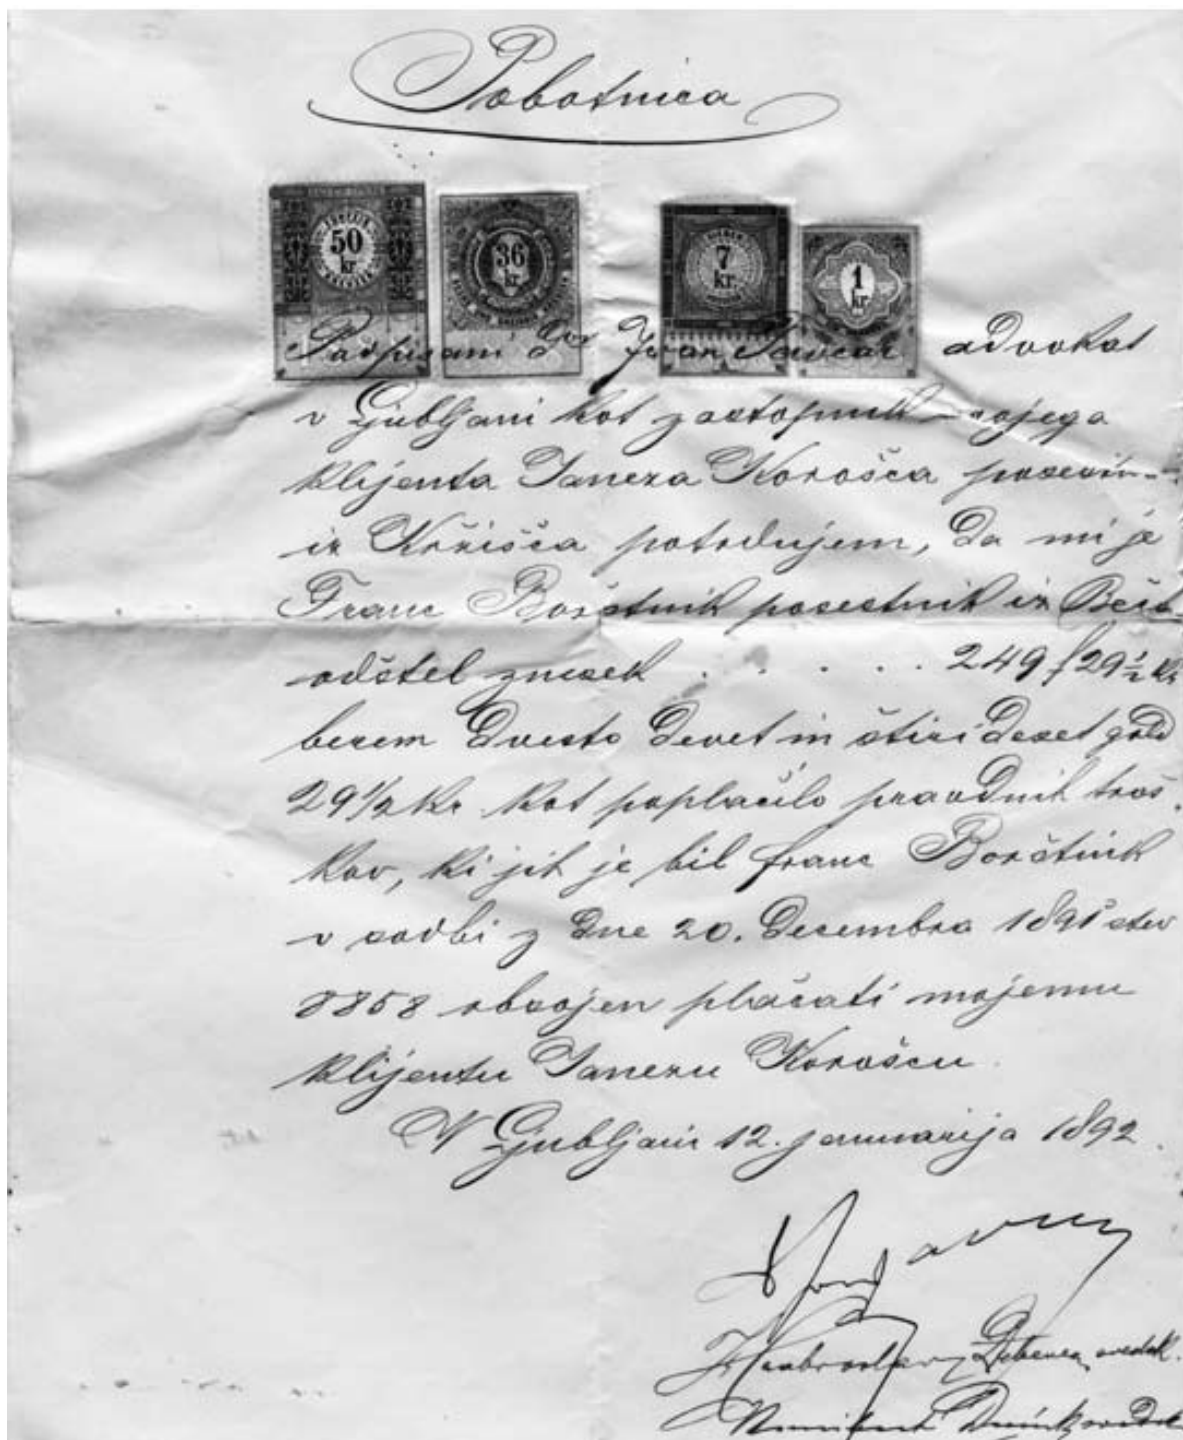 Pobotnica
50
kr
36
kr.
7
kr.
1
kr
Podpisani Dor Ivan Tavčar advokat
v Ljubljani kot zastopnik mojega
klijenta Janeza Korošca
iz Križišča potrdujem, da mi je
Franc Borštnik posestnik iz
odštel znesek . . . . . 249 f 29 1/2 kr
besem dvesto devet in štirideset gold
29 1/2 kr. kot poplačilo pravdnih troš
kov, ki jih je bil franc Borštnik
v sodbi z dne 20. decembra 1891 štev
8858 obsojen plačati mojemu
klijentu Janezu Korošcu.
V Ljubljani 12. januarija 1892.